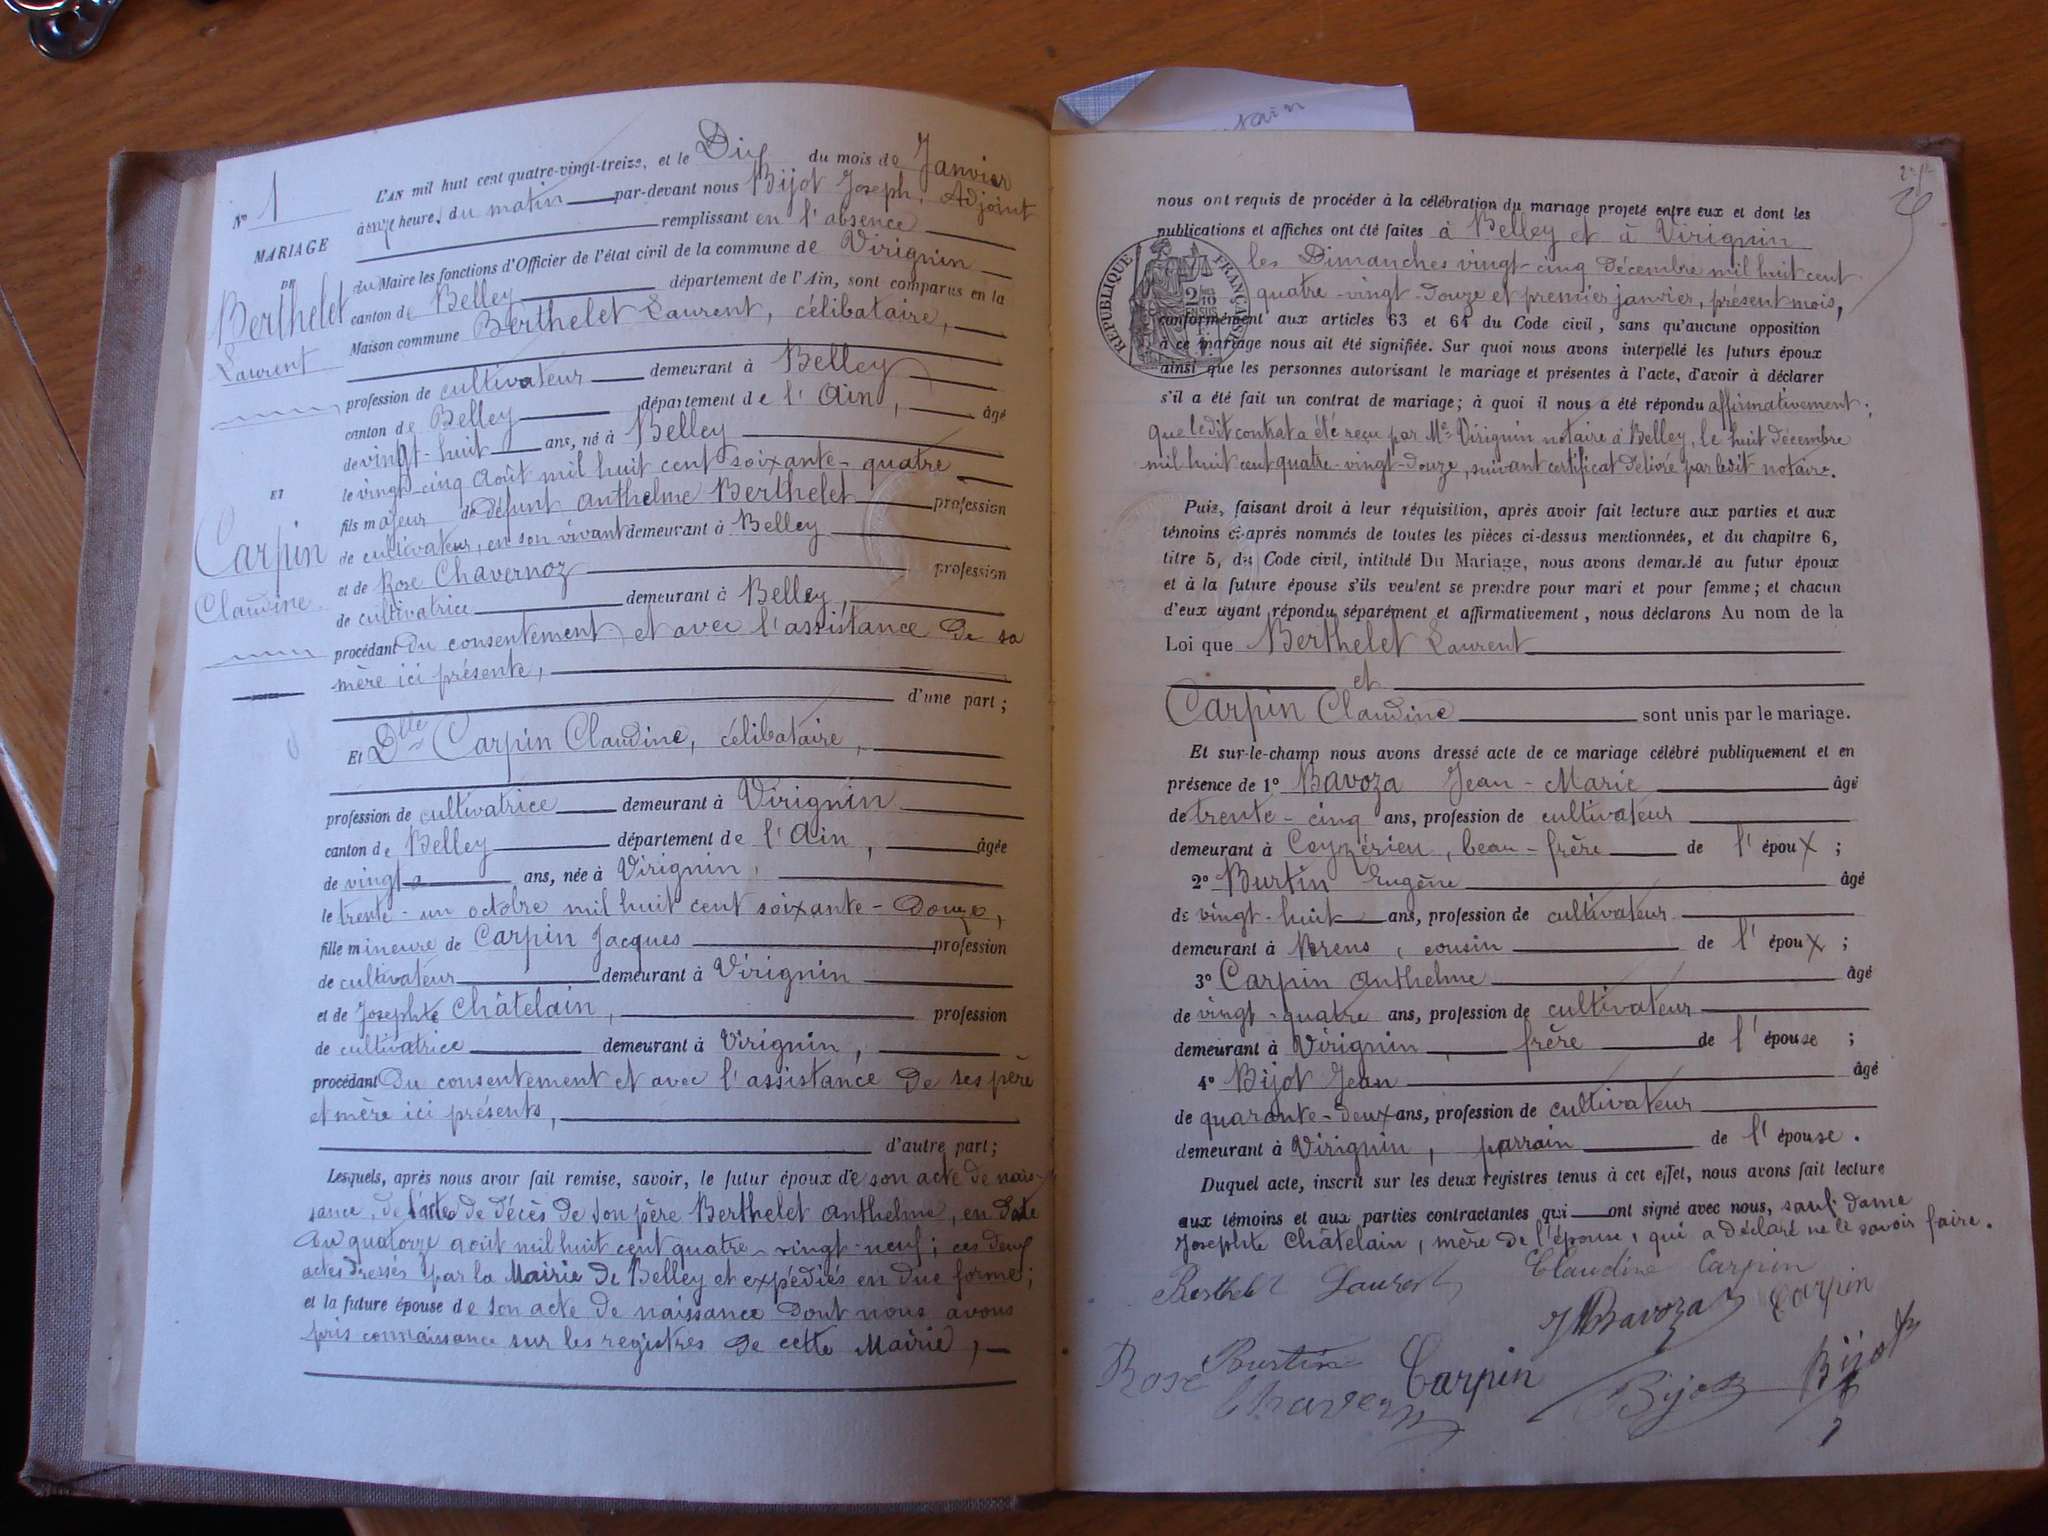 ...tain
L'AN mil huit cent quatre-vingt-treize, et le Dix du mois de Janvier
N° 1
à onze heure, du matin par-devant nous Bijot Joseph, Adjoint
remplissant en l'absence
MARIAGE
DE
du Maire les fonctions d'Officier de l'état civil de la commune de Virignin
Berthelet
Laurent
canton de Belley département de l'Ain, sont comparus en la
Maison commune Berthelet Laurent, célibataire,
profession de cultivateur demeurant à Belley
canton de Belley département de l'Ain, âgé
de vingt-huit ans, né à Belley
le vingt-cinq Août mil huit cent soixante-quatre
ET
fils majeur de défunt Anthelme Berthelet profession
Carpin
Claudine
de cultivateur, en son vivant demeurant à Belley
et de Rose Chavernoz profession
de cultivatrice demeurant à Belley,
procédant du consentement et avec l'assistance de sa
mère ici présente,
d'une part;
Et Dlle Carpin Claudine, célibataire,
profession de cultivatrice demeurant à Virignin
canton de Belley département de l'Ain, âgée
de vingt ans, née à Virignin,
le trente-un octobre mil huit cent soixante-douze,
fille mineure de Carpin Jacques profession
de cultivateur demeurant à Virignin
et de Josephte Châtelain, profession
de cultivatrice demeurant à Virignin,
procédant du consentement et avec l'assistance de ses père
et mère ici présents,
d'autre part;
Lesquels, après nous avoir fait remise, savoir, le futur époux de son acte de nais-
sance, de l'acte de décès de son père Berthelet Anthelme, en date
du quatorze août mil huit cent quatre-vingt-neuf; ces deux
actes dressés par la Mairie de Belley et expédiés en due forme;
et la future épouse de son acte de naissance dont nous avons
pris connaissance sur les registres de cette Mairie,
nous ont requis de procéder à la célébration du mariage projeté entre eux et dont les
publications et affiches ont été faites à Belley et à Virignin
les Dimanches vingt-cinq décembre mil huit cent
quatre-vingt-douze et premier janvier, présent mois,
RÉPUBLIQUE FRANÇAISE
conformément aux articles 63 et 64 du Code civil, sans qu'aucune opposition
à ce mariage nous ait été signifiée. Sur quoi nous avons interpellé les futurs époux
ainsi que les personnes autorisant le mariage et présentes à l'acte, d'avoir à déclarer
s'il a été fait un contrat de mariage; à quoi il nous a été répondu affirmativement,
que ledit contrat a été reçu par Me Virignin notaire à Belley, le huit décembre
mil huit cent quatre-vingt-douze, suivant certificat délivré par ledit notaire.
Puis, faisant droit à leur réquisition, après avoir fait lecture aux parties et aux
témoins ci-après nommés de toutes les pièces ci-dessus mentionnées, et du chapitre 6,
titre 5, du Code civil, intitulé Du Mariage, nous avons demandé au futur époux
et à la future épouse s'ils veulent se prendre pour mari et pour femme; et chacun
d'eux ayant répondu séparément et affirmativement, nous déclarons Au nom de la
Loi que Berthelet Laurent
et
Carpin Claudine sont unis par le mariage.
Et sur-le-champ nous avons dressé acte de ce mariage célébré publiquement et en
présence de 1° Bavoza Jean-Marie âgé
de trente-cinq ans, profession de cultivateur
demeurant à Ceyzérieu, beau-frère de l'époux;
2° Burtin Eugène âgé
de vingt-huit ans, profession de cultivateur
demeurant à Brens, cousin de l'époux;
3° Carpin Anthelme âgé
de vingt-quatre ans, profession de cultivateur
demeurant à Virignin, frère de l'épouse;
4° Bijot Jean âgé
de quarante-deux ans, profession de cultivateur
demeurant à Virignin, parrain de l'épouse.
Duquel acte, inscrit sur les deux registres tenus à cet effet, nous avons fait lecture
aux témoins et aux parties contractantes qui ont signé avec nous, sauf dame
Josephte Châtelain, mère de l'épouse, qui a déclaré ne le savoir faire.
Berthelet Laurent Claudine Carpin
JM Bavoza Carpin
Rose Burtin Carpin Bijot Bijot
Chavernoz